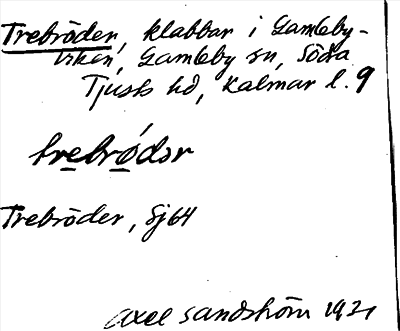 Trebröder, klabbar i Gamleby-
viken, Gamleby sn, Södra
Tjusts hd, Kalmar l. 9
trebródər
Trebröder, Sj 64
Axel Sandström 1921